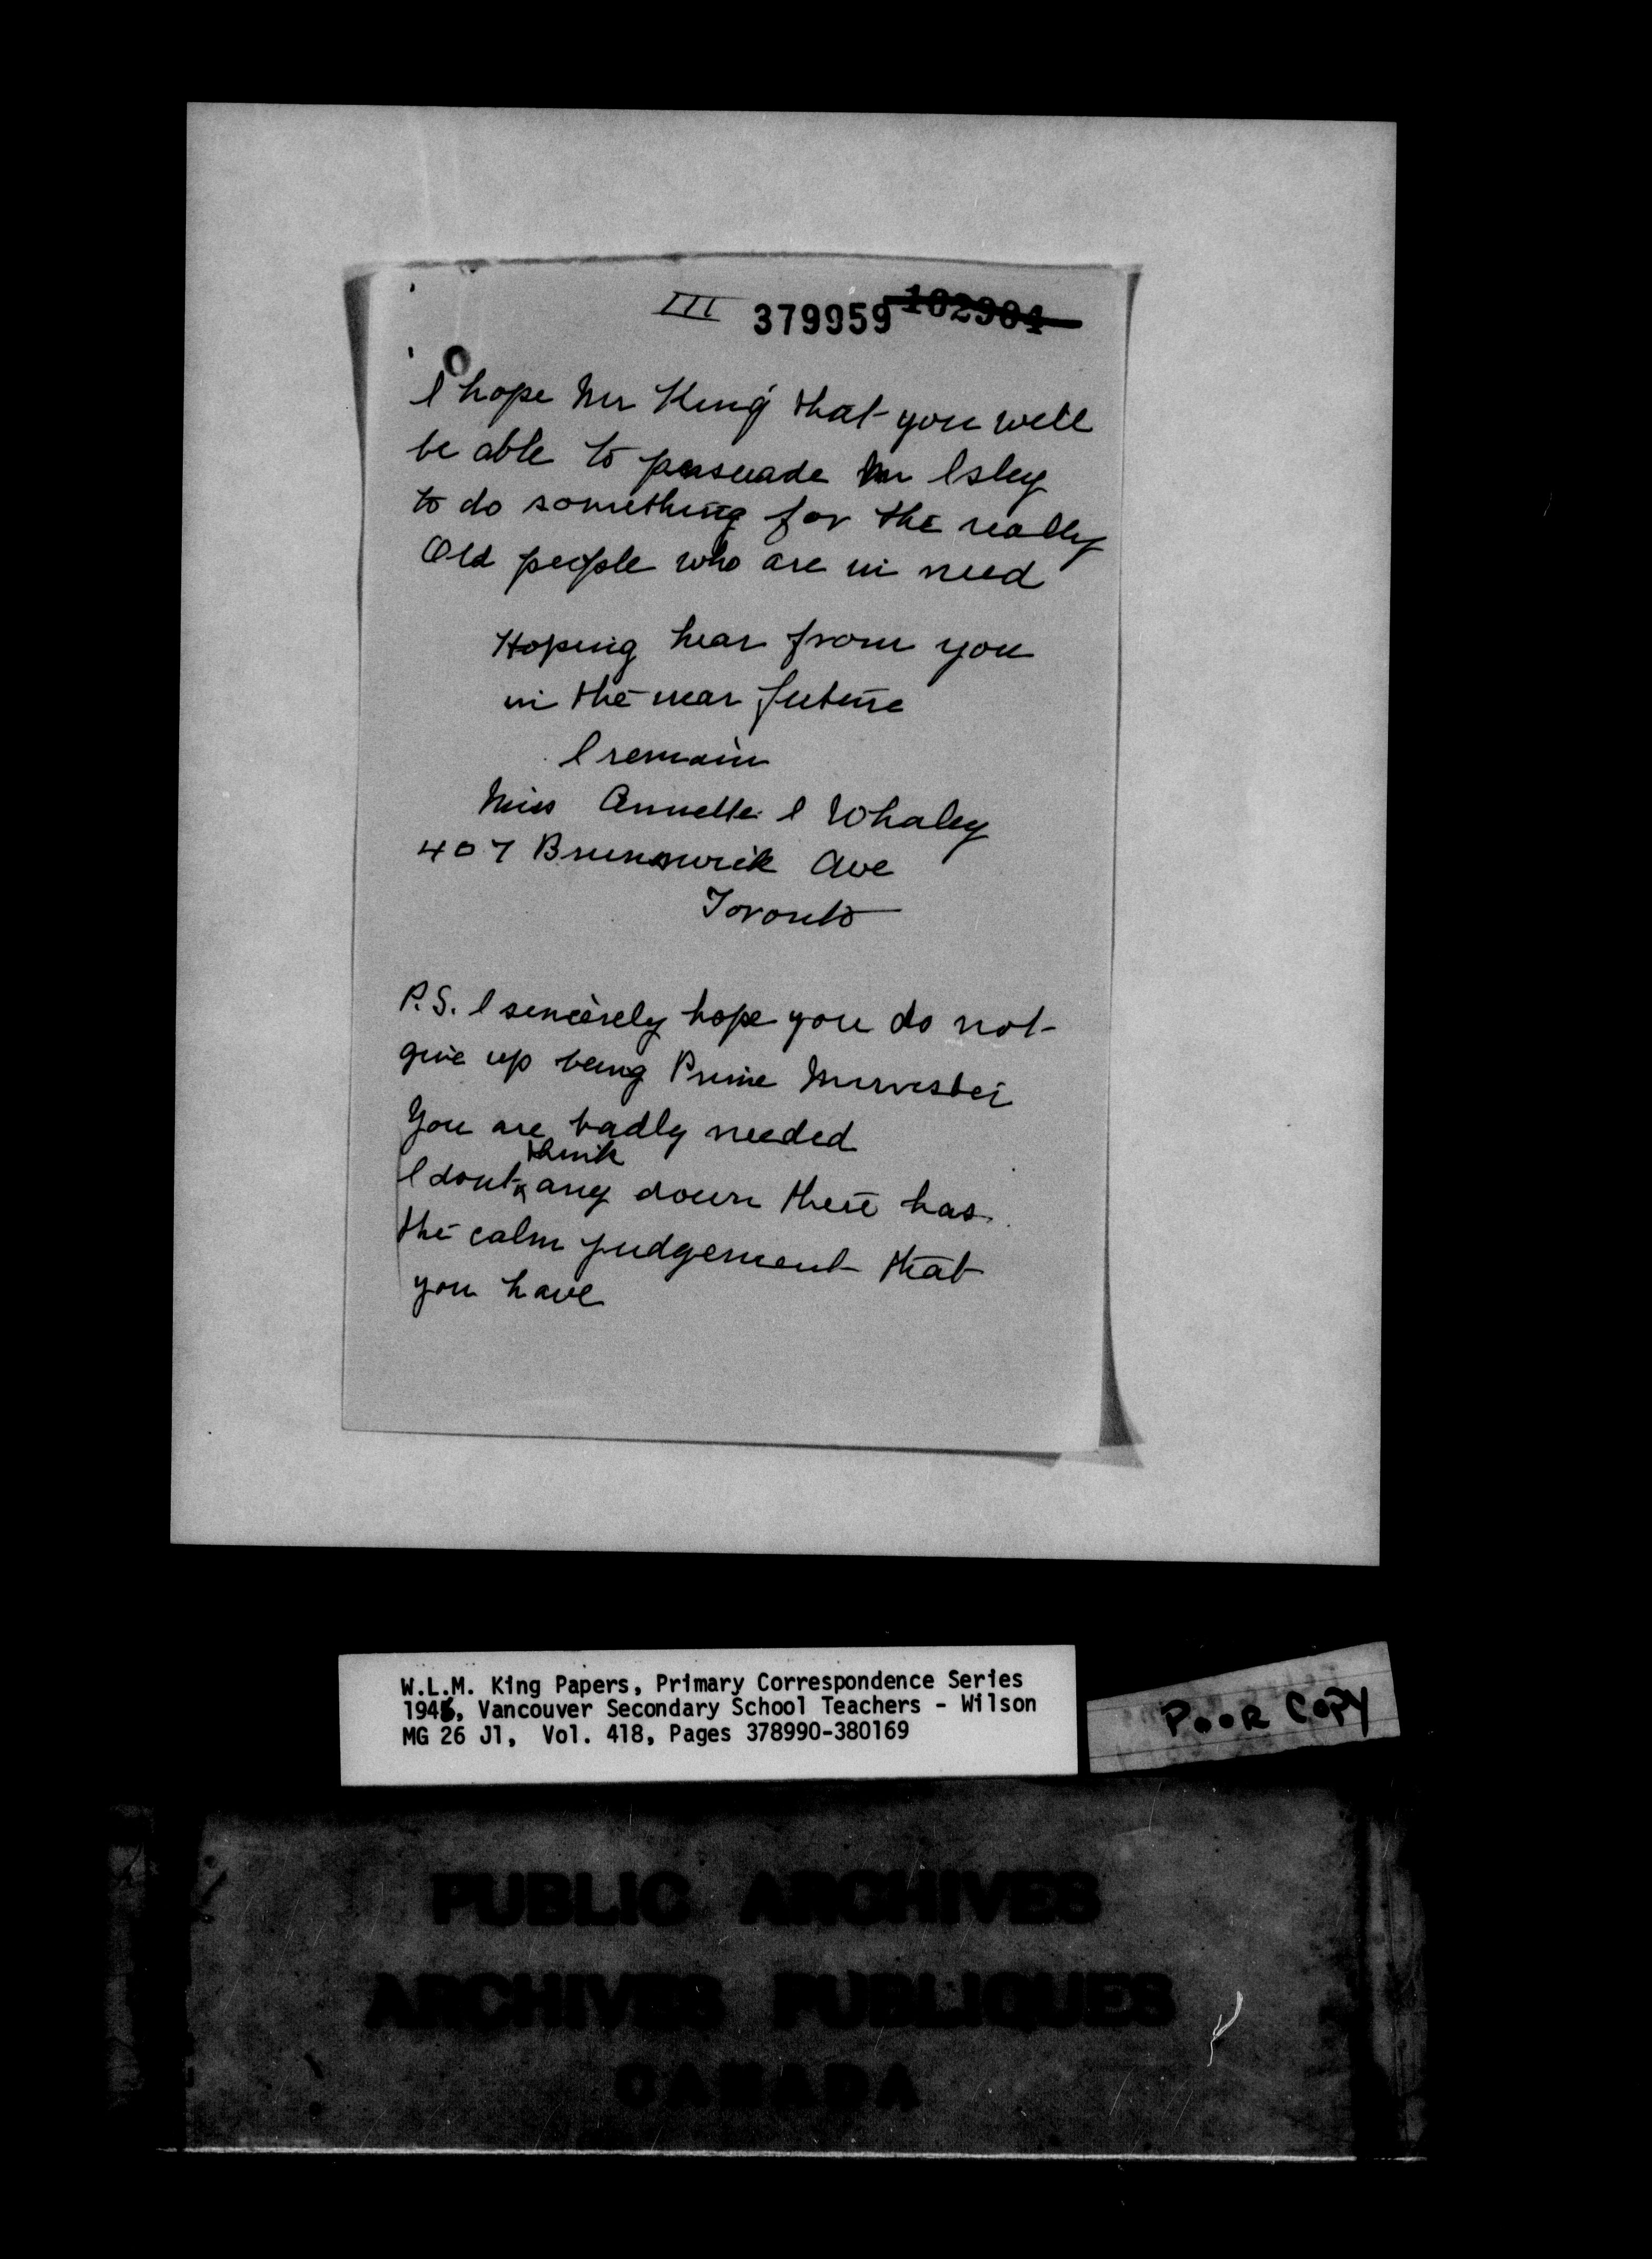 III 379959 102904
I hope Mr King that you will
be able to persuade Mr Isley
to do something for the really
Old people who are in need
Hoping hear from you
in the near future
I remain
Miss Annette I Whaley
407 Brunswick Ave
Toronto
P.S. I sincerely hope you do not
give up being Prime Minister
You are badly needed
think
I dont any down there has
the calm judgement that
you have
W.L.M. King Papers, Primary Correspondence Series
1946, Vancouver Secondary School Teachers - Wilson
MG 26 J1, Vol. 418, Pages 378990-380169
POOR COPY
PUBLIC ARCHIVES
ARCHIVES PUBLIQUES
CANADA